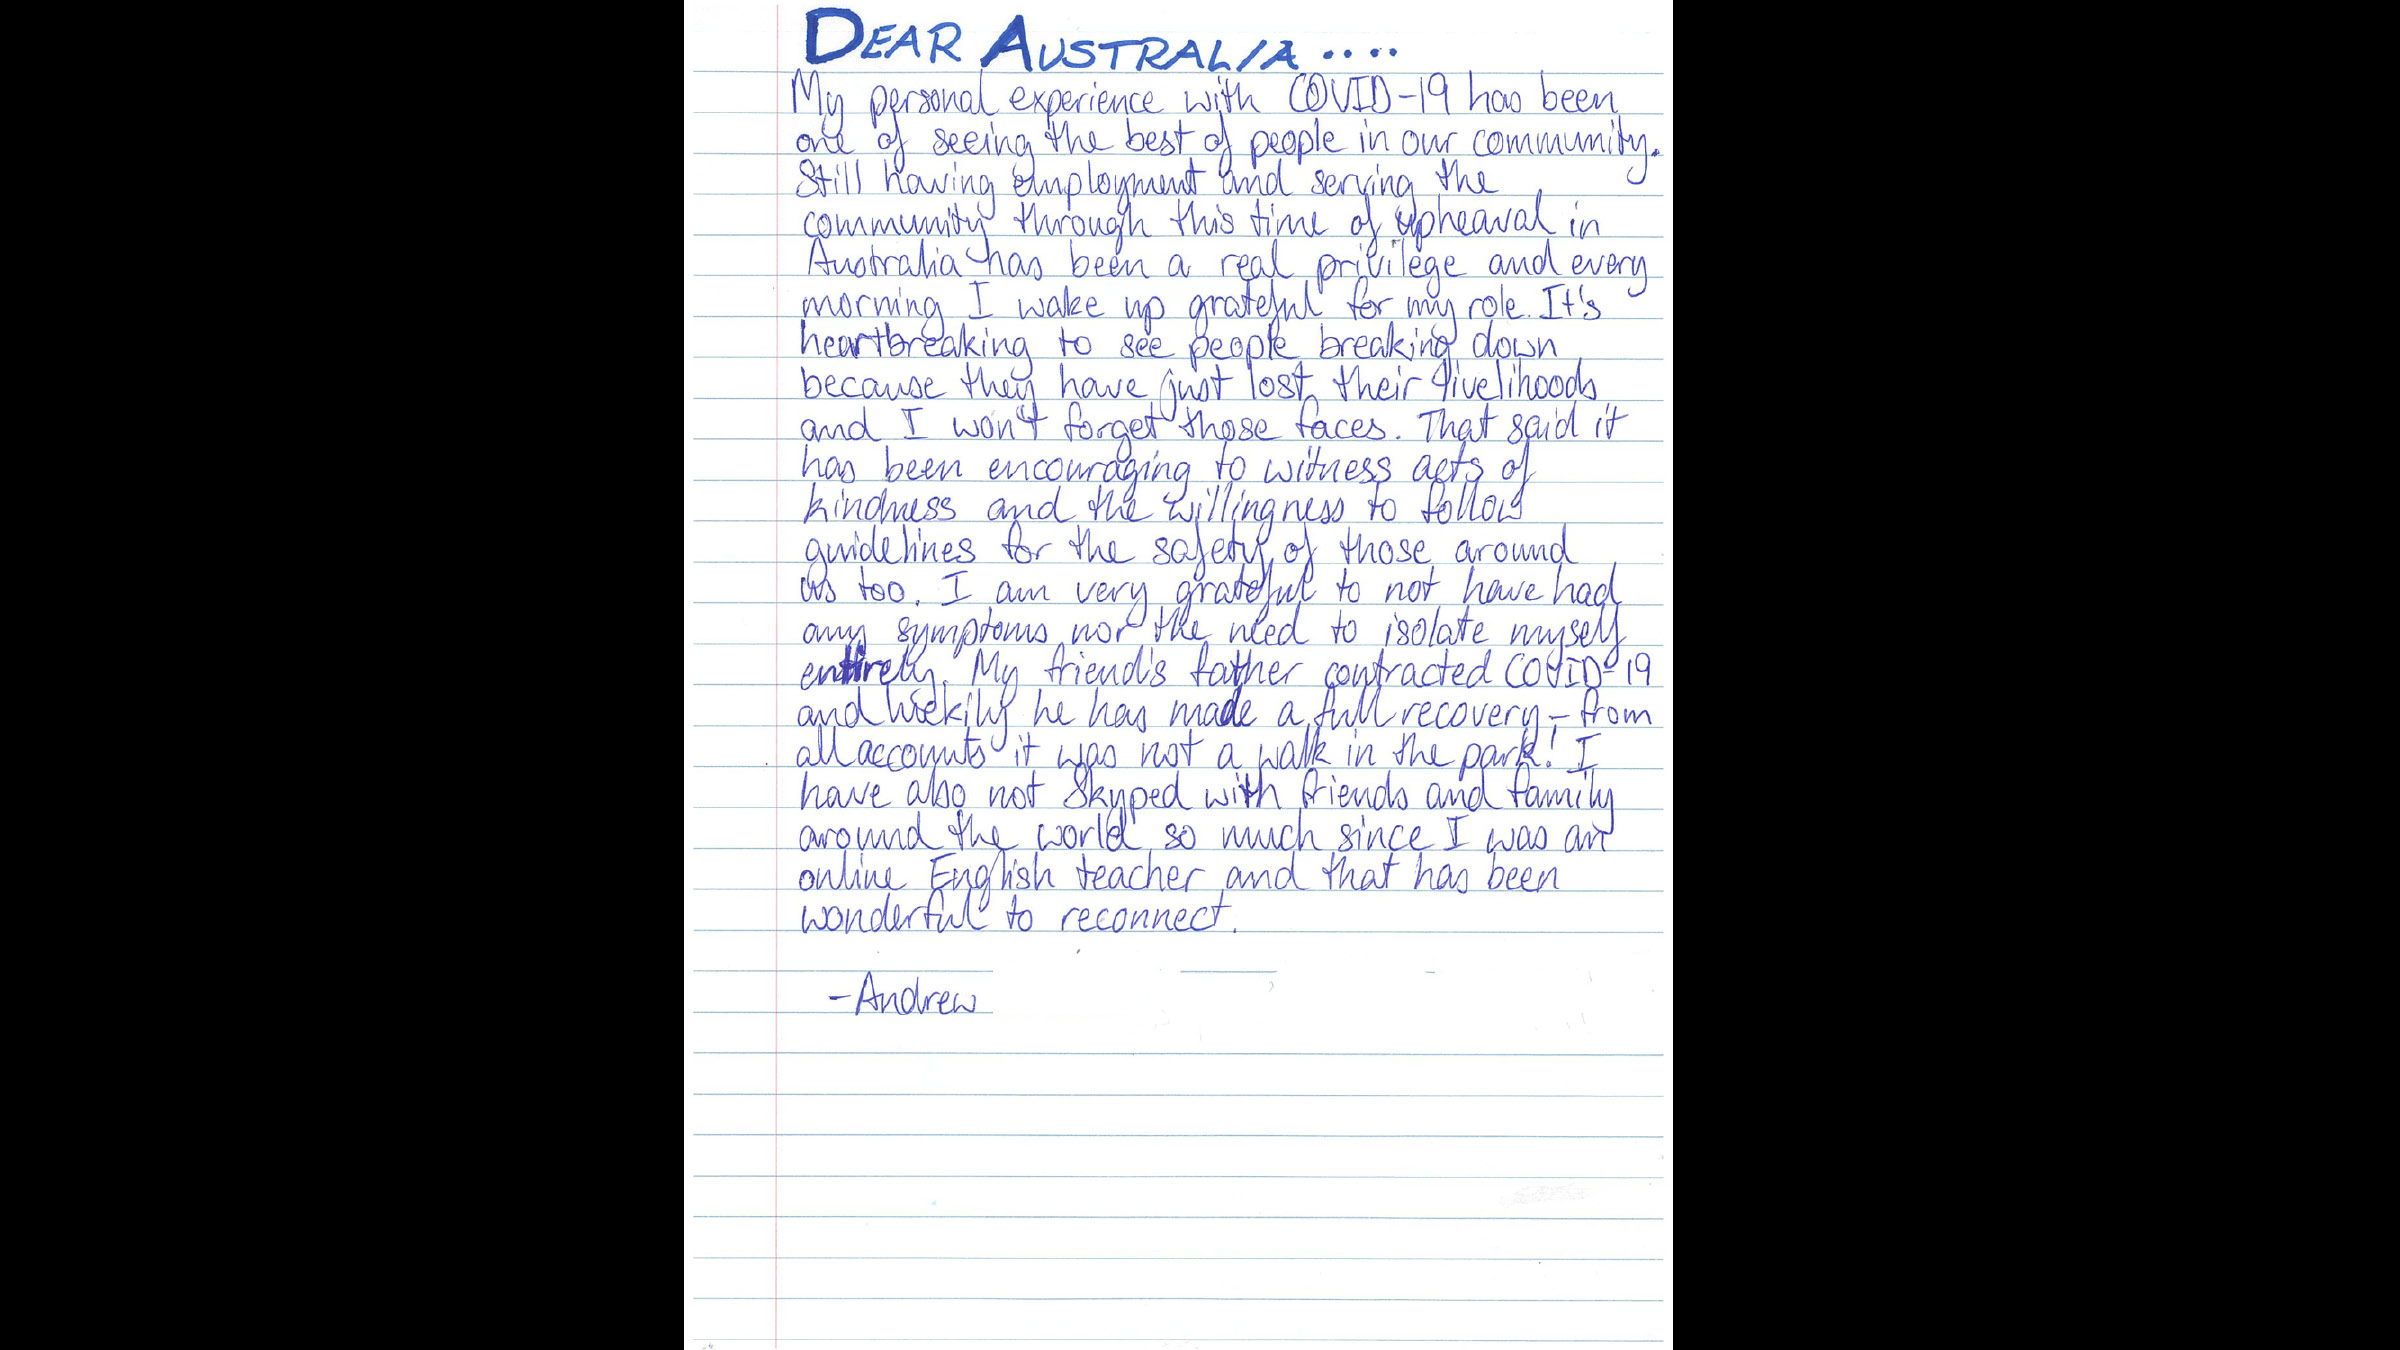 DEAR AUSTRALIA ....
My personal experience with COVID-19 has been
one of seeing the best of people in our community.
Still having employment and serving the
community through this time of upheaval in
Australia has been a real privilege and every
morning I wake up grateful for my role. It's
heartbreaking to see people breaking down
because they have just lost their livelihoods
and I won't forget those faces. That said it
has been encouraging to witness acts of
kindness and the willingness to follow
guidelines for the safety of those around
us too. I am very grateful to not have had
any symptoms nor the need to isolate myself
entirely. My friend's father contracted COVID-19
and luckily he has made a full recovery - from
all accounts it was not a walk in the park! I
have also not Skyped with friends and family
around the world so much since I was an
online English teacher and that has been
wonderful to reconnect.
-Andrew